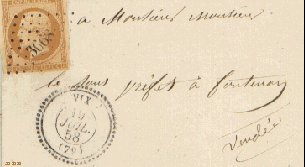 à Monsieur Monsieur
le Sous préfet à Fontenay
Vendée
3608
VIX
19
JUIL.
58
(79)